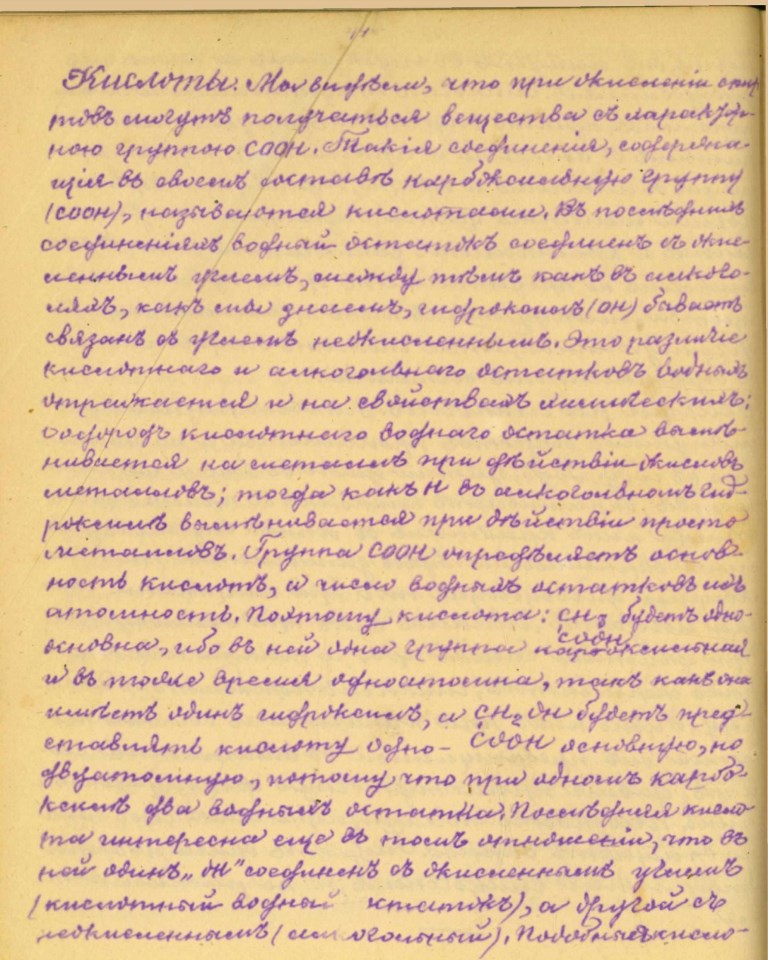 Кислоты. Мы видѣли, что при окисленіи спир-
товъ могутъ получаться вещества съ характер-
ною группою COOH. Такія соединенія, содержа-
щія въ своемъ составѣ карбоксильную группу
(COOH), называются кислотами. Въ послѣднихъ
соединеніяхъ водный остатокъ соединенъ съ окис-
леннымъ углемъ, между тѣмъ какъ въ алкого-
ляхъ, какъ мы знаемъ, гидроксилъ (OH) бываетъ
связанъ съ углемъ неокисленнымъ. Это различіе
кислотнаго и алкогольнаго остатковъ водныхъ
отражается и на свойствахъ химическихъ:
водородъ кислотнаго воднаго остатка вымѣ-
нивается на металлъ при дѣйствіи окисловъ
металловъ; тогда какъ H въ алкогольномъ гид-
роксилѣ вымѣнивается при дѣйствіи просто
металловъ. Группа COOH опредѣляетъ основ-
ность кислотъ, а число водныхъ остатковъ ихъ
атомность. Поэтому кислота: CH3 будетъ одно-
COOH
основна, ибо въ ней одна группа карбоксильная
и въ тоже время одноатомна, такъ какъ она
имѣетъ одинъ гидроксилъ, а CH2OH будетъ пред-
ставлять кислоту одно- COOH основную, но
двуатомную, потому что при одномъ карбо-
ксилѣ два водныхъ остатка. Послѣдняя кисло-
та интересна еще въ томъ отношеніи, что въ
ней одинъ „OH" соединенъ съ окисленнымъ углемъ
(кислотный водный остатокъ), а другой съ
неокисленнымъ (алкогольный). Подобныя кисло-